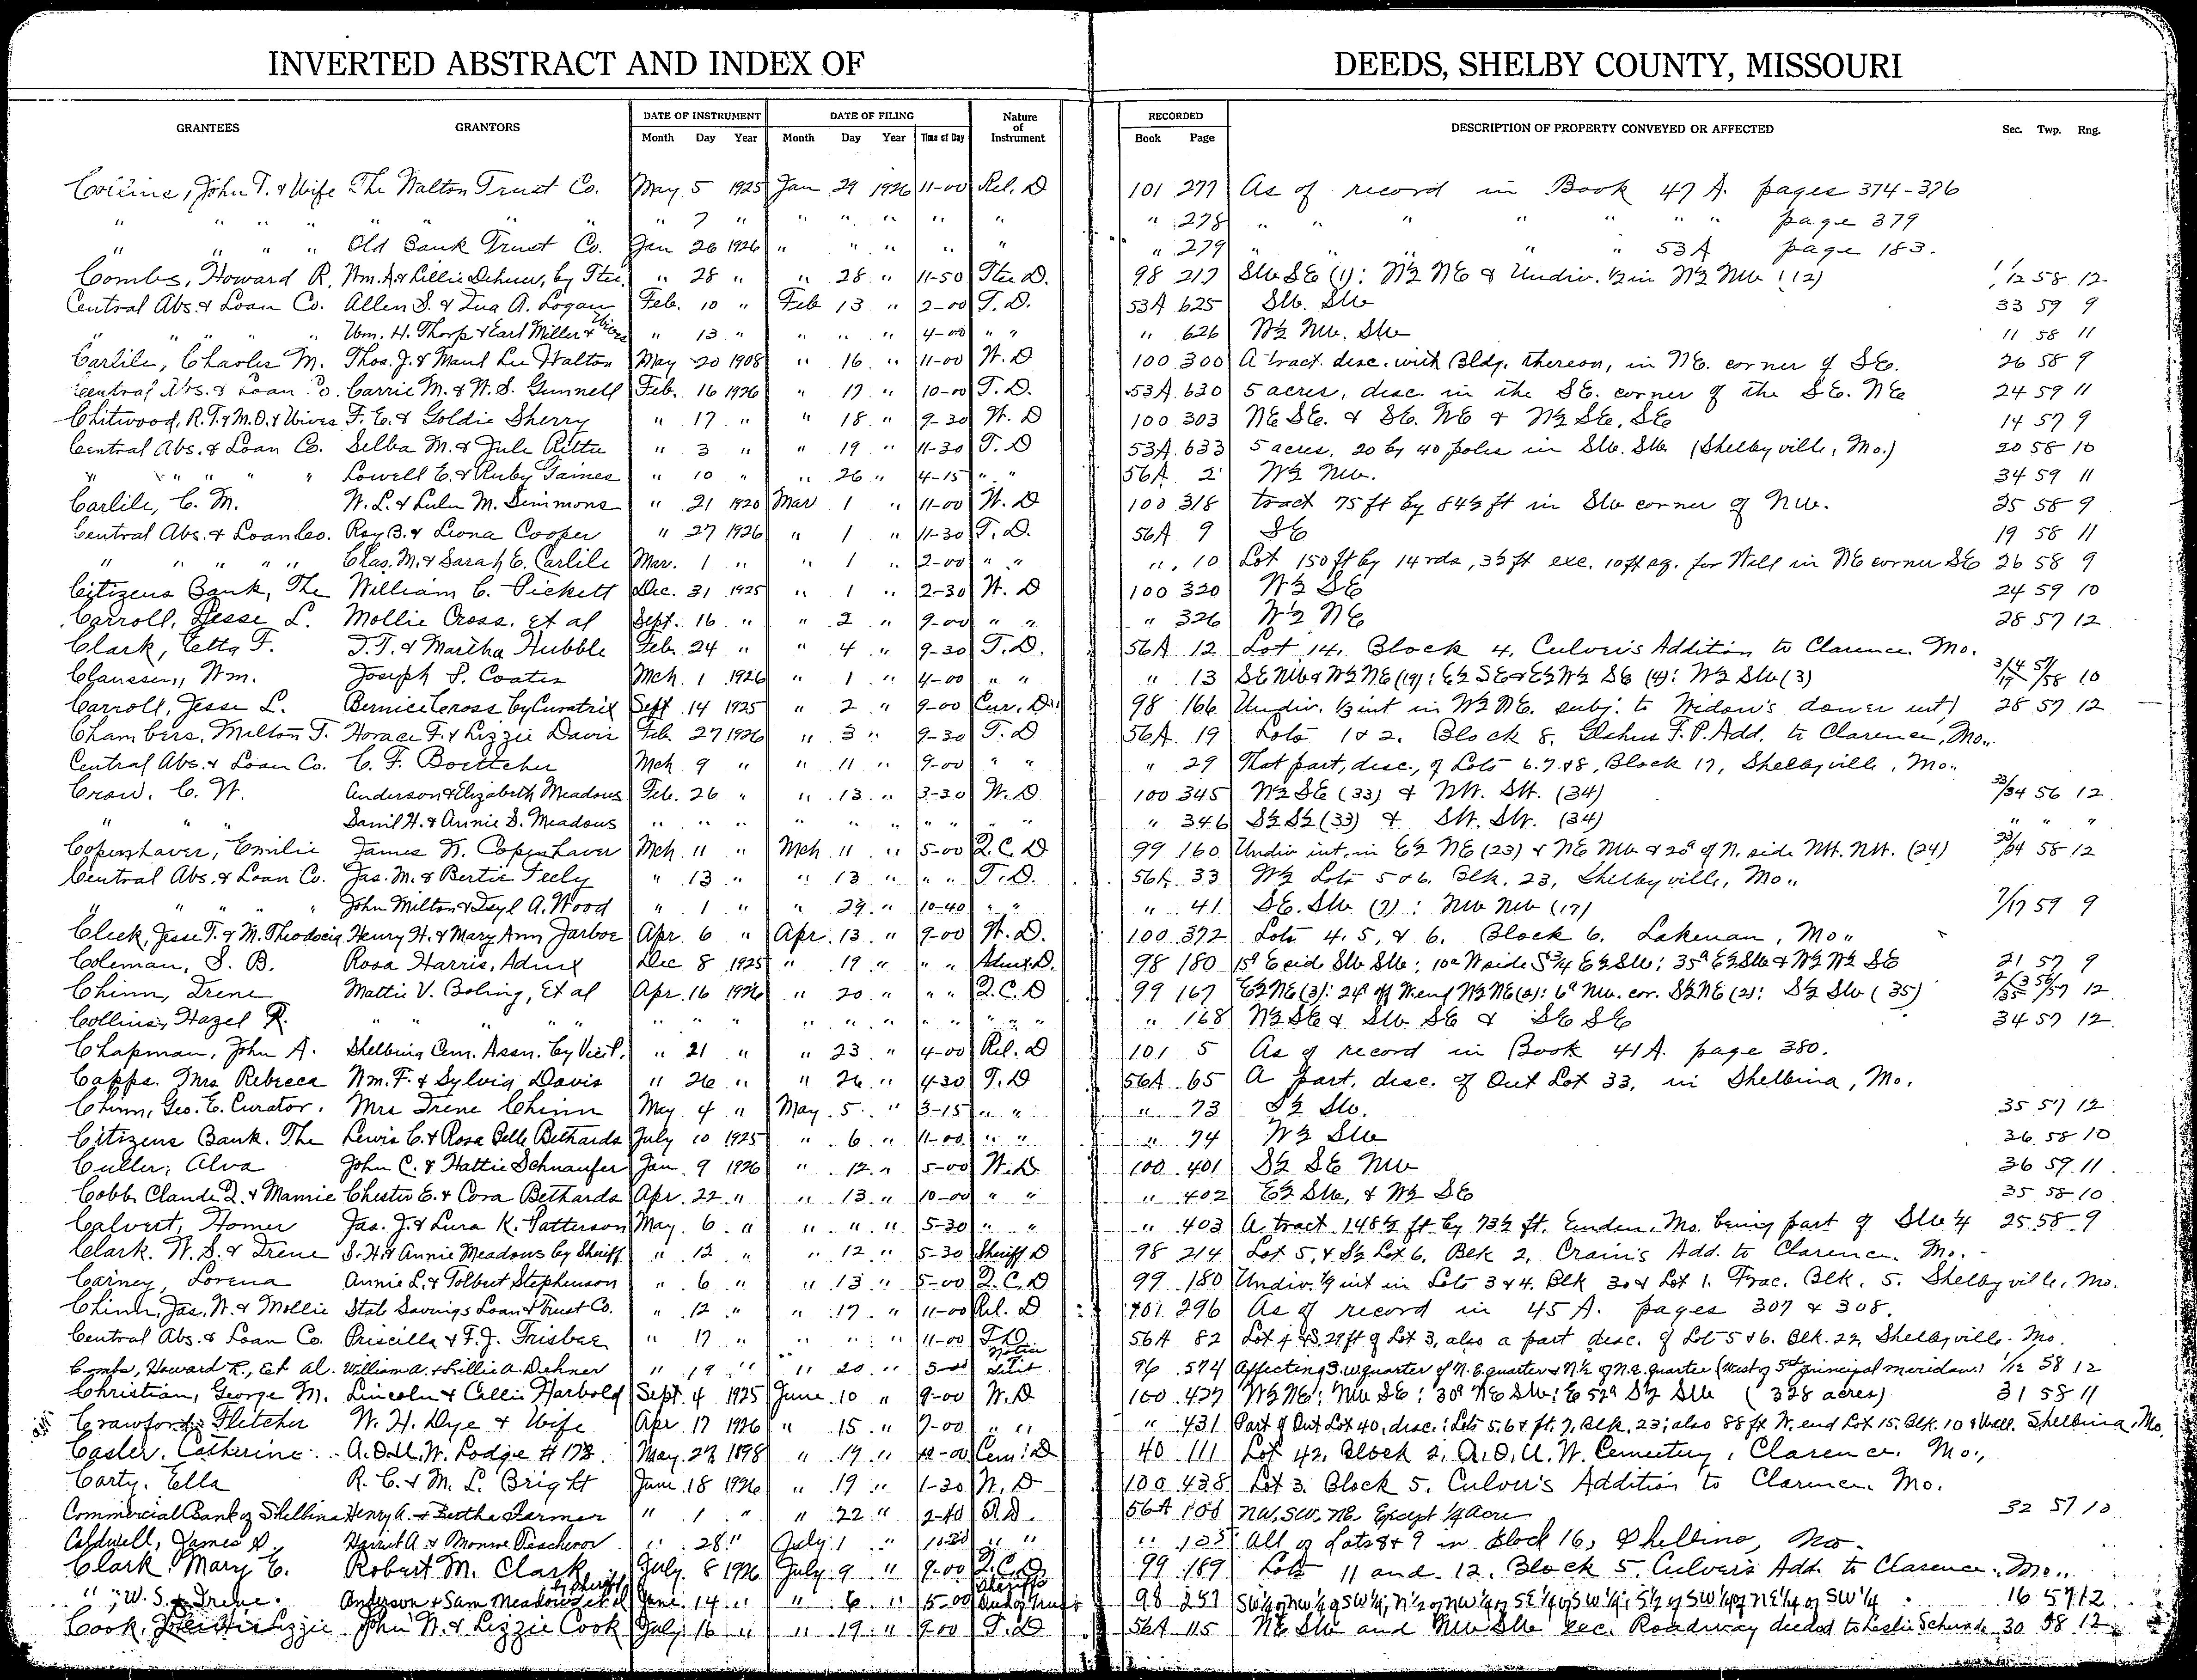 INVERTED ABSTRACT AND INDEX OF DEEDS, SHELBY COUNTY, MISSOURI
GRANTEES GRANTORS DATE OF INSTRUMENT DATE OF FILING Nature of Instrument RECORDED DESCRIPTION OF PROPERTY CONVEYED OR AFFECTED Sec. Twp. Rng.
Month Day Year Month Day Year Time of Day Book Page
John T. & Wife The Walton Trust Co. May 5 1925 Jan 29 1926 11-00 Rel. D 101 277 As of record in Book 47 A. pages 374-376
" " " " " " " " " 7 " " " " " " " 278 " " " " " " " page 379
" " " " Old Bank Trust Co. Jan 26 1926 " " " " " " 279 " " " " " 53A page 183.
Combs, Howard R. Wm. A. & Lillie Dehner, by Ttee. " 28 " " 28 " 11-50 Ttee D. 98 217 SW SE (1): N½ NE & Undiv. ½ in N½ NW (12) 1/12 58 12
Central Abs. & Loan Co. Allen S. & Ina A. Logan Feb. 10 " Feb 13 " 2-00 T. D. 53A 625 SW. SW 33 59 9
" " " " Wm. H. Thorp & Earl Miller & Wives " 13 " " " " 4-00 " " " 626 W½ NW. SW 11 58 11
Carlile, Charles M. Thos. J. & Maud Lee Walton May 20 1908 " 16 " 11-00 W. D 100 300 A tract. desc. with Bldg. thereon, in NE. corner of SE. 26 58 9
Central Abs. & Loan Co. Carrie M. & W. S. Gunnell Feb. 16 1926 " 17 " 10-00 T. D. 53A 630 5 acres, desc. in the SE. corner of the SE. NE 24 59 11
Chitwood, R. T. & M. O. & Wives F. E. & Goldie Sherry " 17 " " 18 " 9-30 W. D 100 303 NE SE. & SE. NE & N½ SE. SE 14 57 9
Central Abs. & Loan Co. Selba M. & Jule " 3 " " 19 " 11-30 T. D 53A 633 5 acres. 20 by 40 poles in SW. SW (Shelbyville, Mo.) 20 58 10
" " " " " Lowell E. & Ruby Gaines " 10 " " 26 " 4-15 " " 56A 2 W½ NW. 34 59 11
Carlile, C. M. W. L. & Lulu M. Simmons " 21 1920 Mar 1 " 11-00 W. D 100 318 tract 75 ft by 84½ ft in SW corner of NW. 25 58 9
Central Abs. & Loan Co. Roy B. & Leona Cooper " 27 1926 " 1 " 11-30 T. D. 56A 9 SE 19 58 11
" " " " " Chas. M. & Sarah E. Carlile Mar. 1 " " 1 " 2-00 " " " 10 Lot 150 ft by 14 rds, 3½ ft exc. 10 ft sq. for Well in NE corner SE 26 58 9
Citizens Bank, The William C. Pickett Dec. 31 1925 " 1 " 2-30 W. D 100 320 W½ SE 24 59 10
Carroll, Jesse L. Mollie Cross. et al Sept. 16 " " 2 " 9-00 " " " 326 W½ NE 28 57 12
Clark, Etta F. T. T. & Martha Hubble Feb. 24 " " 4 " 9-30 T. D. 56A 12 Lot 14, Block 4, Culver's Addition to Clarence. Mo.
Claussen, Wm. Joseph P. Coates Mch. 1 1926 " 1 " 4-00 " " " 13 SE NW & W½ NE (19): E½ SE & E½ W½ SE (4): W½ SW (3) 10
Carroll, Jesse L. Bernice Cross by Curatrix Sept 14 1925 " 2 " 9-00 Cur. D. 98 166 Undiv. ⅓ int in W½ NE. subj. to Widow's dower int) 28 57 12
Chambers, Milton T. Horace F. & Lizzie Davis Feb. 27 1926 " 3 " 9-30 T. D 56A 19 Lots 1 & 2. Block 8. F. P. Add. to Clarence, Mo.
Central Abs. & Loan Co. C. F. Boettcher Mch 9 " " 11 " 9-00 " " " 29 That part, desc., of Lots 6. 7. & 8, Block 17, Shelbyville, Mo.
Crow, C. W. Anderson & Elizabeth Meadows Feb. 26 " " 13 " 3-30 W. D 100 345 N½ SE (33) & NW. SW. (34) 33/34 56 12
" " " Saml H. & Annie S. Meadows " " " " " " " " " " " 346 S½ S½ (33) & SW. SW. (34) " " "
Copenhaver, Emilie James N. Copenhaver Mch 11 " Mch 11 " 5-00 Q. C. D 99 160 Undiv int. in E½ NE (23) & NE NW & 20ª of N. side NW. NW. (24) 23/24 58 12
Central Abs. & Loan Co. Jas. M. & Bertie Feely " 13 " " 13 " " " T. D. 56A 33 W½ Lots 5 & 6. Blk. 23, Shelbyville, Mo.
" " " " " John Milton & A. Wood " 1 " " 29 " 10-40 " " " 41 SE. SW (7): NW NW (17) 7/17 59 9
Cleek, Jesse T. & M. Theodocia Henry H. & Mary Ann Jarboe Apr. 6 " Apr. 13 " 9-00 W. D. 100 372 Lots 4, 5, & 6. Block 6. Lakenan, Mo.
Coleman, S. B. Rosa Harris, Admx Dec 8 1925 " 19 " " " Admx D. 98 180 15ª E side SW SW; 10ª W side S¾ E½ SW; 35ª E½ SW & W½ W½ SE 21 57 9
Chinn, Irene Mattie V. Boling, Et al Apr. 16 1926 " 20 " " " Q. C. D 99 167 E½ NE (3): 24ª off W end W½ NE (2): 6ª NW. cor. S½ NE (2): S½ SW (35) 12
Collins, Hazel R. " " " " " " " " " " " " " " " " 168 N½ SE & SW SE & SE SE 34 57 12
Chapman, John A. Shelbina Cem. Assn. by " 21 " " 23 " 4-00 Rel. D 101 5 As of record in Book 41A. page 380.
Capps. Mrs Rebecca Wm. F. & Sylvia Davis " 26 " " 26 " 4-30 T. D 56A 65 A part, desc. of Out Lot 33, in Shelbina, Mo.
Chinn, Geo. E. Curator. Mrs Irene Chinn May 4 " May 5 " 3-15 " " " 73 S½ SW. 35 57 12
Citizens Bank. The Lewis C. & Rosa Belle Bethards July 10 1925 " 6 " 11-00 " " " 74 W½ SW 36 58 10
Culler, Alva John C. & Hattie Schnaufer Jan. 9 1926 " 12 " 5-00 W. D 100 401 S½ SE NW 36 59 11
Cobb Claude Q. & Mamie Chester E. & Cora Bethards Apr. 22 " " 13 " 10-00 " " " 402 E½ SW, & W½ SE 35 58 10
Calvert, Homer Jas. J. & Lura K. Patterson May. 6 " " " " 5-30 " " " 403 A tract 148½ ft by 73½ ft. Emden, Mo. being part of SW¼ 25 58 9
Clark. W. S. & Irene S. H. & Annie Meadows by Sheriff " 12 " " 12 " 5-30 Sheriff D 98 214 Lot 5, & S½ Lot 6, Blk 2, Crain's Add. to Clarence. Mo.
Carney, Lorena Annie L. & Tolbert Stephenson " 6 " " 13 " 5-00 Q. C. D 99 180 Undiv. 1/9 int in Lots 3 & 4. Blk 30 & Lot 1. Frac. Blk. 5. Shelbyville, Mo.
Chinn, Jas. W. & Mollie State Savings Loan & Trust Co. " 12 " " 17 " 11-00 Rel. D 101 296 As of record in 45 A. pages 307 & 308.
Central Abs. & Loan Co. Priscilla & F. J. Frisbee " 17 " " " " 11-00 T. D. 56A 82 Lot 4 & S. 29 ft of Lot 3, also a part desc. of Lots 5 & 6. Blk. 22, Shelbyville. Mo.
Combs, Howard R., Et al. William A. & Lillie A. Dehner " 19 " " 20 " 5-00 Notice Suit 96 574 Affecting S. W quarter of N. E. quarter & N.½ of N. E. quarter (West of 5th principal meridian) 1/12 58 12
Christian, George M. Lincoln & Callie Harbold Sept. 4 1925 June 10 " 9-00 W. D 100 427 W½ NE; NW SE: 30ª NE SW; E 52ª S½ SW (328 acres) 31 58 11
Crawford, Fletcher W. H. Dye & Wife Apr 17 1926 " 15 " 9-00 " " " 431 Part of Out Lot 40, desc.; Lots 5, 6 & ft. 7, Blk. 23; also 88 ft W. end Lot 15. Blk. 10 Shelbina, Mo.
Casler, Catherine A. O. U. W. Lodge # May 27 1898 " 19 " Cem. D 40 111 Lot 42, Block 2, A. O. U. W. Cemetery, Clarence, Mo.
Carty. Ella R. C. & M. L. Bright June 18 1926 " 19 " 1-30 W. D 100 438 Lot 3, Block 5, Culver's Addition to Clarence. Mo.
Commercial Bank of Shelbina Henry A. & Bertha Farmer " 1 " " 22 " 2-40 56A NW, SW, NE. Except ¼ acre 32 57 10
Caldwell, James & Monroe " 28 " July 1 " " " " 105 All of Lots 8 & 9 in Block 16, Shelbina, Mo.
Clark. Mary E. Robert M. Clark July 8 1926 July 9 " 9-00 Q. C. D. 99 189 Lots 11 and 12, Block 5, Culver's Add. to Clarence. Mo.
" , W. S. & Irene. Anderson & Sam Meadows et al by Sheriff June 14 " " 6 " 5-00 Sheriff's Trust 98 257 SW¼ of NW¼ of SW¼; N½ of NW¼ of SE¼ of SW¼; S½ of SW¼ of NE¼ of SW¼ 16 57 12
Cook, Lizzie John W. & Lizzie Cook July 16 " " 19 " 9-00 T. D 56A 115 NE SW and NW SW exc. Roadway deeded to Leslie 30 58 12